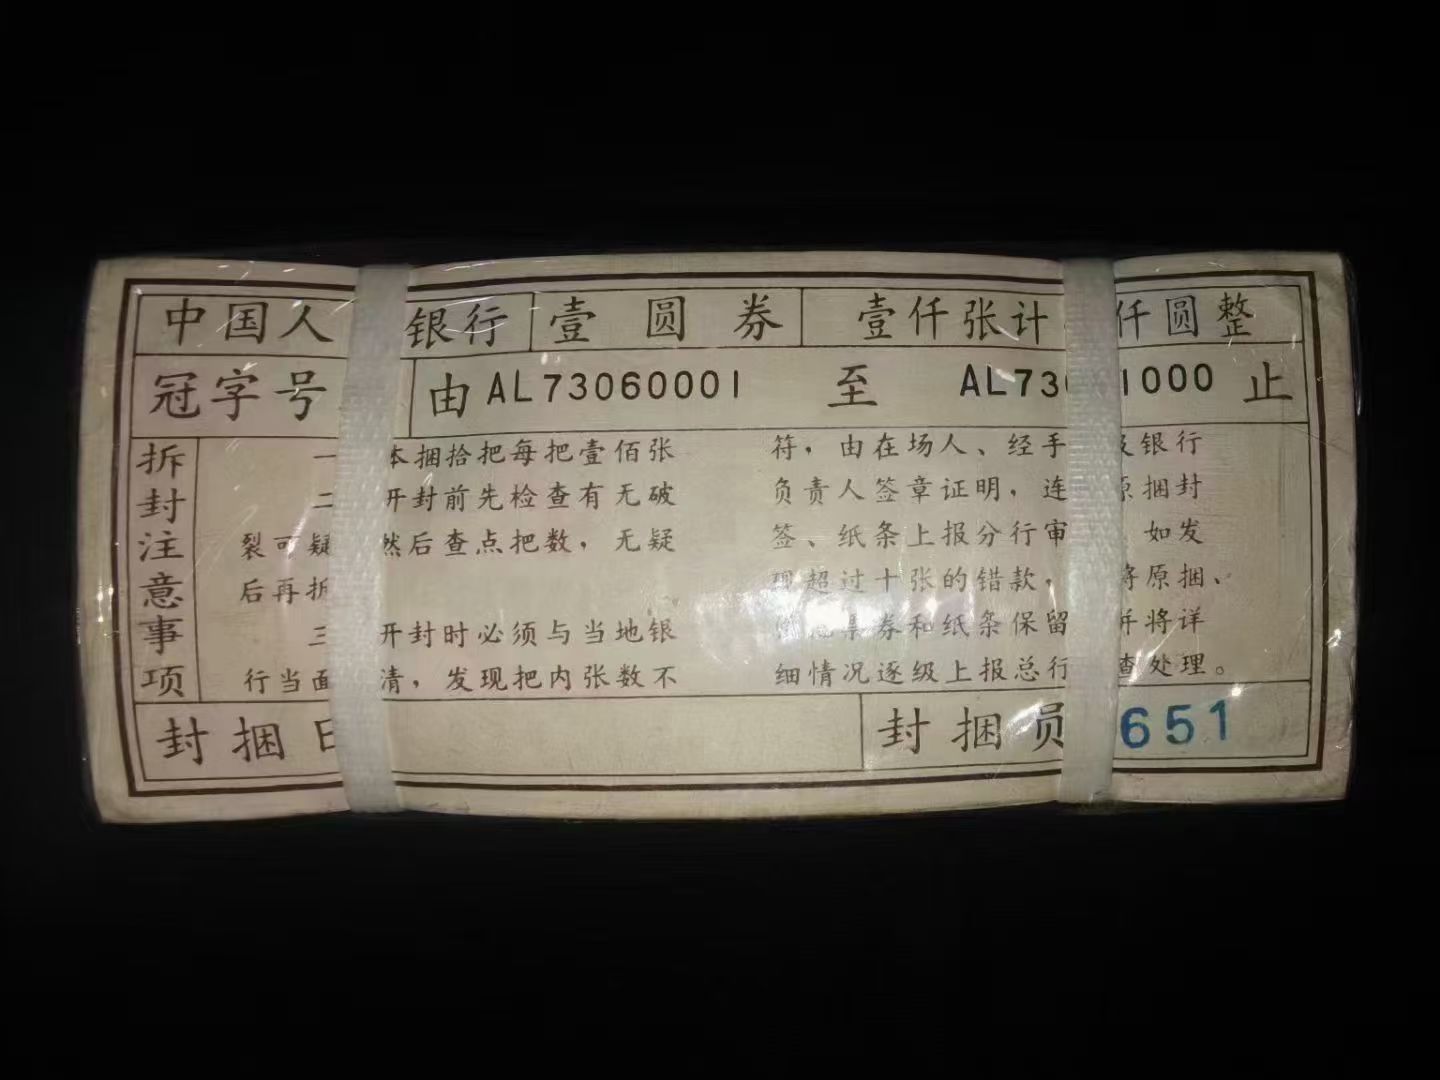 中国人 银行 壹圆券 壹仟张计 仟圆整
冠字号 由 AL73060001 至 AL73 1000 止
拆封注意事项
一 本捆拾把每把壹佰张
二 开封前先检查有无破
裂可疑 然后查点把数，无疑
后再拆
三 开封时必须与当地银
行当面 清，发现把内张数不
符，由在场人、经手 及银行
负责人签章证明，连 原捆封
签、纸条上报分行审 如发
现超过十张的错款， 将原捆、
券和纸条保留 并将详
细情况逐级上报总行 查处理。
封捆日 封捆员 651